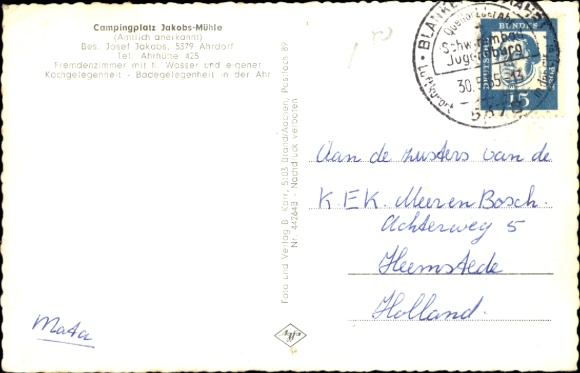 Campingplatz Jakobs-Mühle
(Amtlich anerkannt)
Bes. Josef Jakobs, 5379 Ahrdorf
Tel. Ahrhütte 425
Fremdenzimmer mit fl. Wasser und eigener
Kochgelegenheit - Badegelegenheit in der Ahr
Foto und Verlag B. Karr, 5103 Brand/Aachen, Postfach 89
Nr. 44264B - Nachdruck verboten
BLANKENHEIM (AHR)
Schwimmbad
Jugendburg
Luftkurort
5378
DEUTSCHE BUNDESPOST
15
Aan de zusters van de
K.E.K. Meer en Bosch.
Achterweg 5
Heemstede
Holland.
Mata